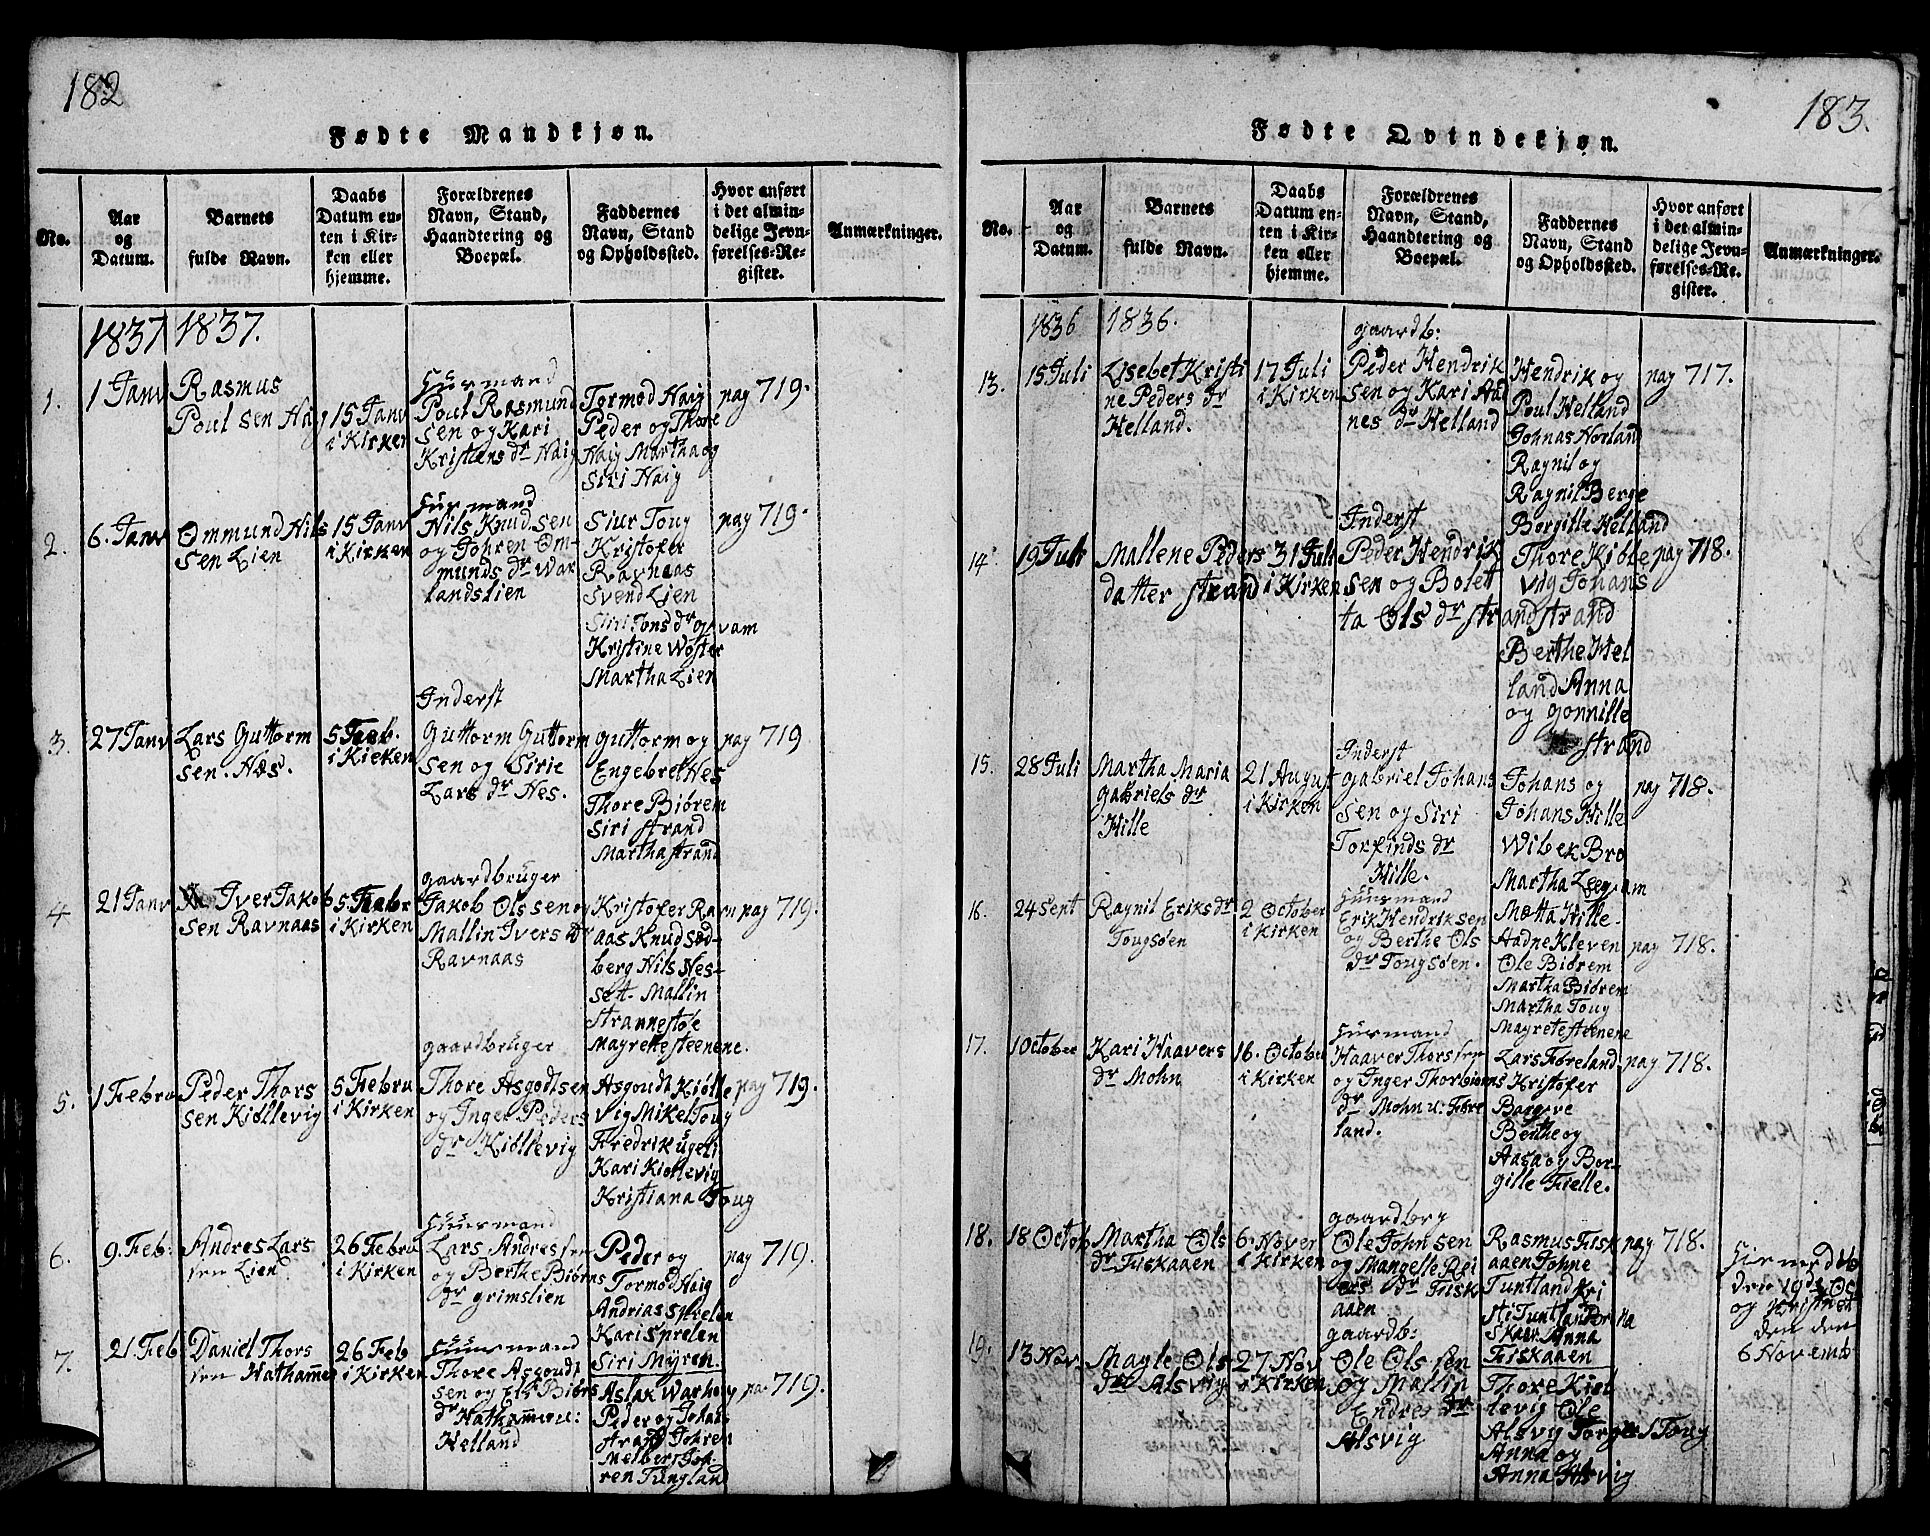 182
Fødte Mandkjøn.
No.
Aar
og
Datum.
Barnets
fulde Navn.
Daabs
Datum en-
ten i Kir-
ken eller
hjemme.
Forældrenes
Navn, Stand,
Haandtering og
Boepæl.
Faddernes
Navn, Stand
og Opholdssted.
Hvor anført
i det almin-
delige Jevn-
førelses-Re-
gister.
Anmærkninger.
1837
1837.
1.
1 Janv
Rasmus
Poul sen Haig
15 Janv
i Kirken
Huusmand
Poul Rasmund
sen og Kari
Kristens dr Haig
Tormod Haig
Peder og Thore
Haig Martha og
Siri Haig
pag 719.
2.
6. Janv
Ommund Nils
sen Lien
15 Janv
i Kirken
Huusmand
Nils Knudsen
og Johren Om-
munds dr War
landslien
Siur Toug
Kristofer
Ravnaas
Svend Lien
Siri Tons dr Qvam
Kristine Woster
Martha Lien
pag 719.
3.
27 Janv
Lars Guttorm
sen. Hæs.
5 Feb.
i Kirken
Inderst
Guttorm Guttorm
sen og Sirie
Lars dr Nes.
Guttorm og
Engebret Nes
Thore Biørem
Siri Strand
Martha Strand
pag 719
4
21 Janv
Iver Jakob
sen Ravnaas
5 Febr
i Kirken
gaardbruger
Jakob Ols sen og
Mallin Ivers dr
Ravnaas
Kristofer Ravn
aas Knud Sæd-
berg Nils Nes-
set. Mallin
Strannestøe
Magrette Steenene.
pag 719.
5.
1 Febru
Peder Thors
sen Kiøllevig
5 Febru
i Kirken
gaardbruger
Thore Asgodtsen
og Inger Peders
dr Kiøllevig
Asgoudt Kiølle
vig Mikel Toug
Fredrik
Kari Kiøllevig
Kristiana Toug
pag 719.
6.
9. Feb:
Andres Lars
sen Lien
26 Febru
i Kirken
Huusmand
Lars Andressen
og Berthe Biørns
dr Grimslien
Peder og
Tormod Haig
Andrias Sprelen
Kari Sprelen
Siri Myren.
pag 719.
7.
21 Feb
Daniel Thors
sen Hathammer
26 Feb
i Kirken
Huusmand
Thore Asgoudt
sen og Els Biørs
dr Hathammeru:
Helland
Aslak Warhoug
Peder og Johans
Johren
Melberg Joh-
ren Tungland
pa. 719.
183.
Fødte Qvindekjøn.
No.
Aar
og
Datum.
Barnets
fulde Navn.
Daabs
Datum en-
ten i Kir-
ken eller
hjemme.
Forældrenes
Navn, Stand,
Haandtering og
Boepæl.
Faddernes
Navn, Stand
og Opholdssted.
Hvor anført
i det almin-
delige Jevn-
førelses-Re-
gister.
Anmærkninger.
1836
1836.
13.
15 Juli
Lisebet Kristi
ne Peders dr
Helland.
17 Juli
i Kirken
gaardb:
Peder Hendrik
sen og Kari Had
nes dr Helland
Hendrik og
Poul Helland
Johnas Norland
Ragnil og
Ragnil Berge
Borgille Helland
pag 717.
14
19 Juli
Mallene Peders
datter Strand
31 Juli
i Kirken
Inderst
Peder Hendrik
sen og Bolet
ta Ols dr Strand
Thore Kible
vig Johans
Strand
Berthe Hel
land Anna
og Gonnille
Strand
pag 718.
15.
28 Juli
Martha Maria
Gabriels dr
Hille
21 August
i Kirken
Inderst
Gabriel Johans
sen og Siri
Torfinds dr
Hille.
Johans og
Johans Hille
Wibek Bro
Martha Leqvam
Mætta Hille
pag 718.
16.
24 Sept
Ragnil Eriks dr
Tougsøen
2 October
i Kirken
Huusmand
Erik Hendriksen
og Berthe Ols
dr Tougsøen.
Hadne Kleven
Ole Biørem
Martha Biørem
Martha Toug
Magrete Steenene
pag 718.
17.
1 October
Kari Haavers
dr Mohn
16. October
i Kirken
Huusmand
Haaver Thorssen
og Inger Thorbiørns
dr Mohn u: Føre
land.
Lars Føreland
Kristofer
Bargeve
Berthe og
Aasa og Bor-
gille Fielle.
pag 718.
18.
18 Octob
Martha Ols
dr Fiskaaen
6. Nover
i Kirken
gaardbrg
Ole Johnsen
og Mangelle Rei
ers dr Fisk
aaen
Rasmus Fisk
aaen Johne
Tuntland Kri
sti Tuntlan Berta
Skaar Anna
Fiskaaen
pag 718.
Hiemedøb
den 19de Oc
og Kristnet
den den
6 Novemb
19.
13 Nov.
Magle Ols
dr Alsvig
27. Nov
i Kirken
gaardb:
Ole Ols sen
og Mallin
Endres dr
Alsvig
Thore Kiøl
levig Ole
Alsvig Torger Toug
Anna og
Anna Alsvig